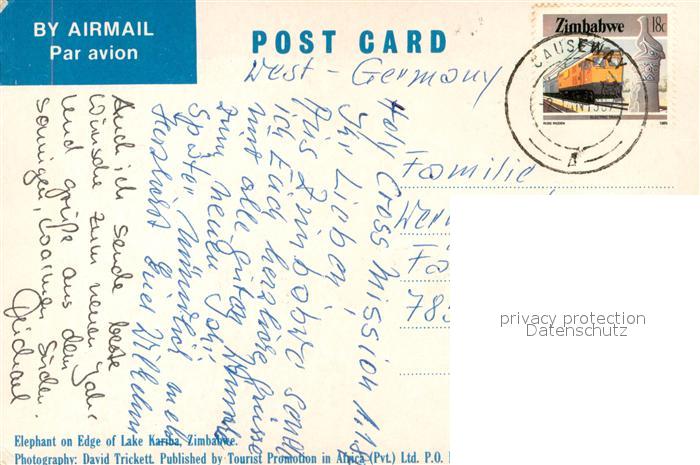 BY AIRMAIL
Par avion
POST CARD
Zimbabwe 18c
CAUSEWAY
ELECTRIC TRAIN
1985
West - Germany
Familie
Holy Cross Mission
Ihr Lieben,
Aus Zimbabwe sende
ich Euch herzliche Grüsse
mit alle guten Wünsche
zum neuen Jahr.
Später mündlich mehr
Herzlichst Euer Wilhelm
Auch ich sende beste
Wünsche zum neuen Jahr
und grüße aus dem
sonnigen, warmen Süden
Michael
privacy protection
Datenschutz
Elephant on Edge of Lake Kariba, Zimbabwe.
Photography: David Trickett. Published by Tourist Promotion in Africa (Pvt.) Ltd. P.O.